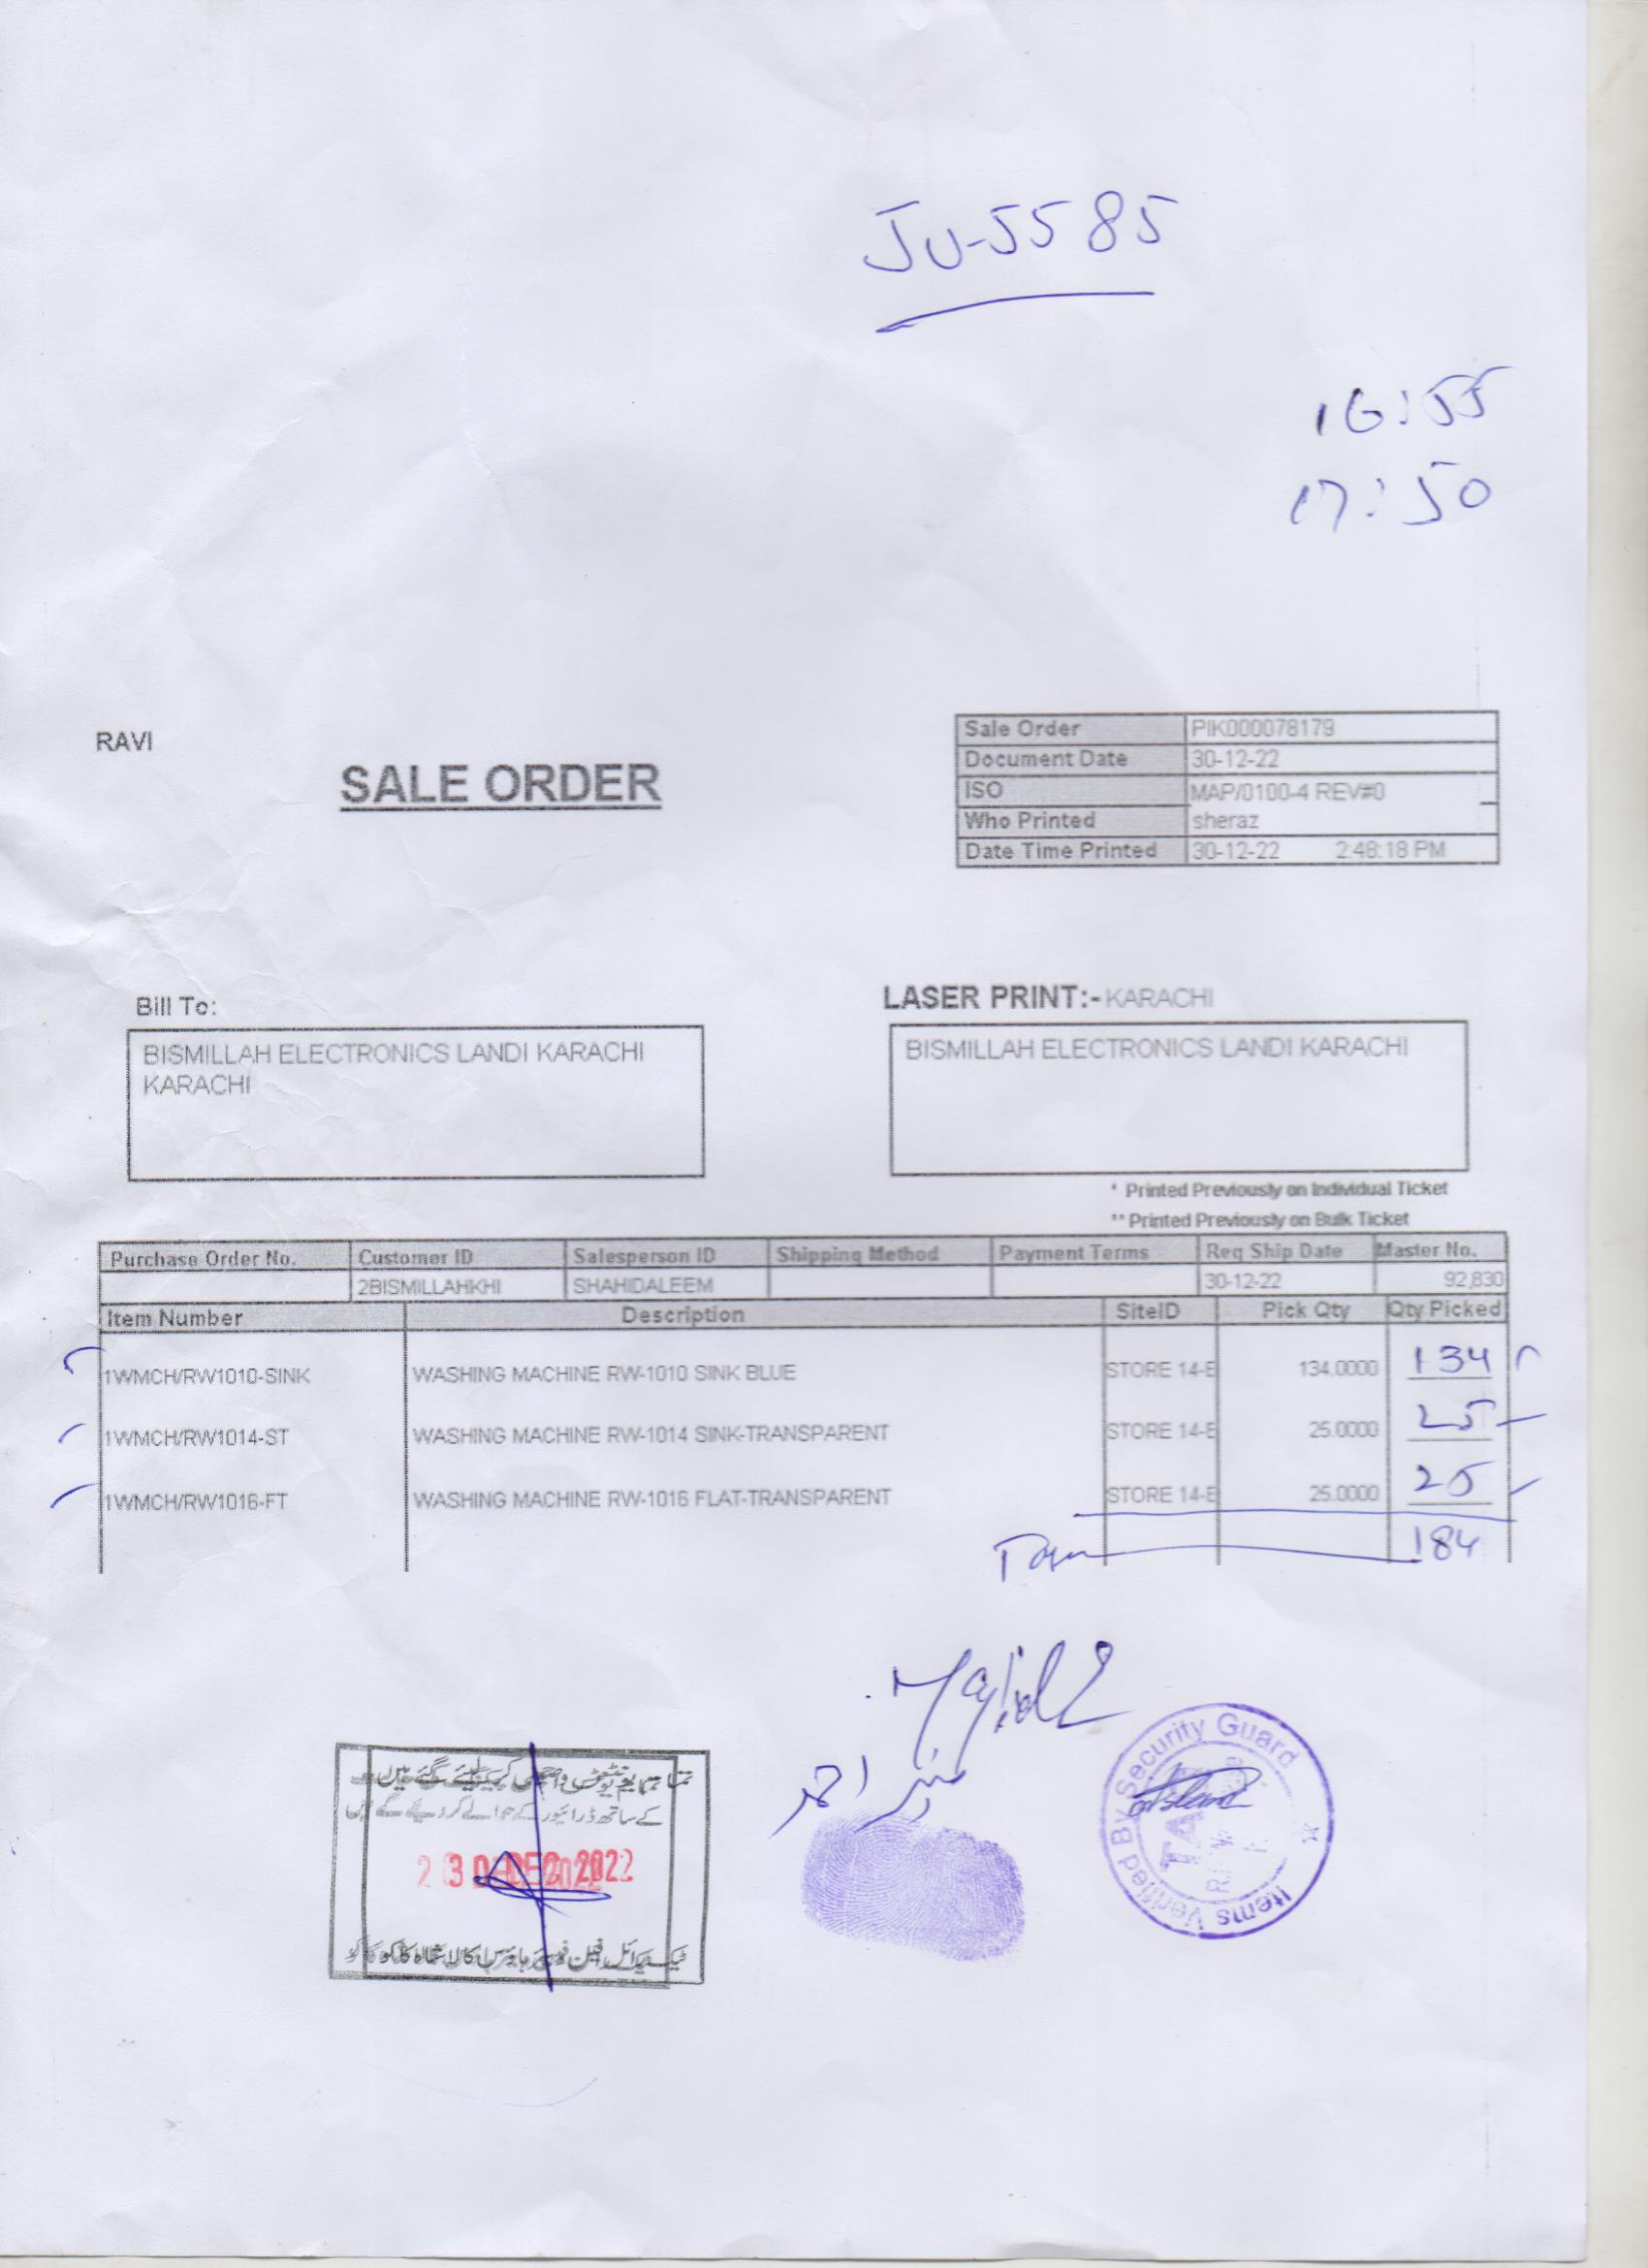 JU-5585
16:55
17:50
RAVI
SALE ORDER
Sale Order PIK000078179
Document Date 30-12-22
ISO MAP/0100-4 REV#0
Who Printed sheraz
Date Time Printed 30-12-22 2:48:18 PM
Bill To:
BISMILLAH ELECTRONICS LANDI KARACHI
KARACHI
LASER PRINT:- KARACHI
BISMILLAH ELECTRONICS LANDI KARACHI
* Printed Previously on Individual Ticket
** Printed Previously on Bulk Ticket
Purchase Order No. Customer ID Salesperson ID Shipping Method Payment Terms Req Ship Date Master No.
2BISMILLAHKHI SHAHIDALEEM 30-12-22 92,830
Item Number Description SiteID Pick Qty Qty Picked
1WMCH/RW1010-SINK WASHING MACHINE RW-1010 SINK BLUE STORE 14-E 134.0000 134
1WMCH/RW1014-ST WASHING MACHINE RW-1014 SINK-TRANSPARENT STORE 14-E 25.0000 25
1WMCH/RW1016-FT WASHING MACHINE RW-1016 FLAT-TRANSPARENT STORE 14-E 25.0000 25
184
Majid
احمد
کے ساتھ ڈرائیور کے حوالے کر دیئے گئے ہیں
30 DEC 2022
Items Verified By Security Guard